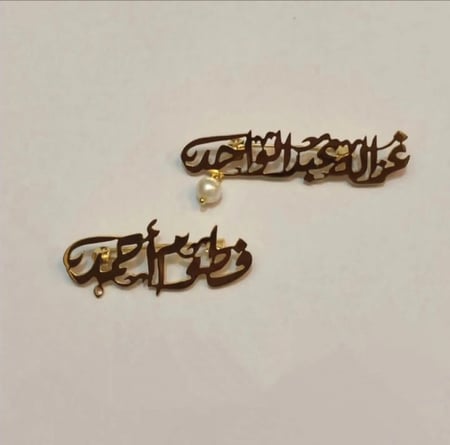 غزاله عبدالواحد
فطوم أحمد